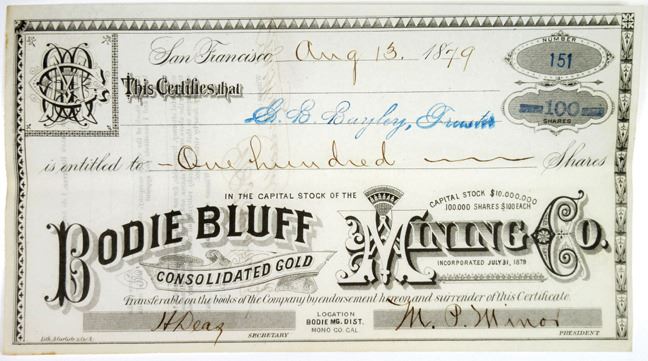 San Francisco Aug 13, 1879
NUMBER
151
This Certifies that
100
SHARES
G. E. Bayley, Trustee
is entitled to One hundred Shares
IN THE CAPITAL STOCK OF THE
CAPITAL STOCK $10,000,000
100,000 SHARES $100 EACH
BODIE BLUFF
CONSOLIDATED GOLD
MINING CO.
INCORPORATED JULY 31, 1879
Transferable on the books of the Company by endorsement hereon and surrender of this Certificate.
LOCATION
BODIE MG. DIST.
MONO CO. CAL.
H Deaz
SECRETARY
M. P. Minor
PRESIDENT